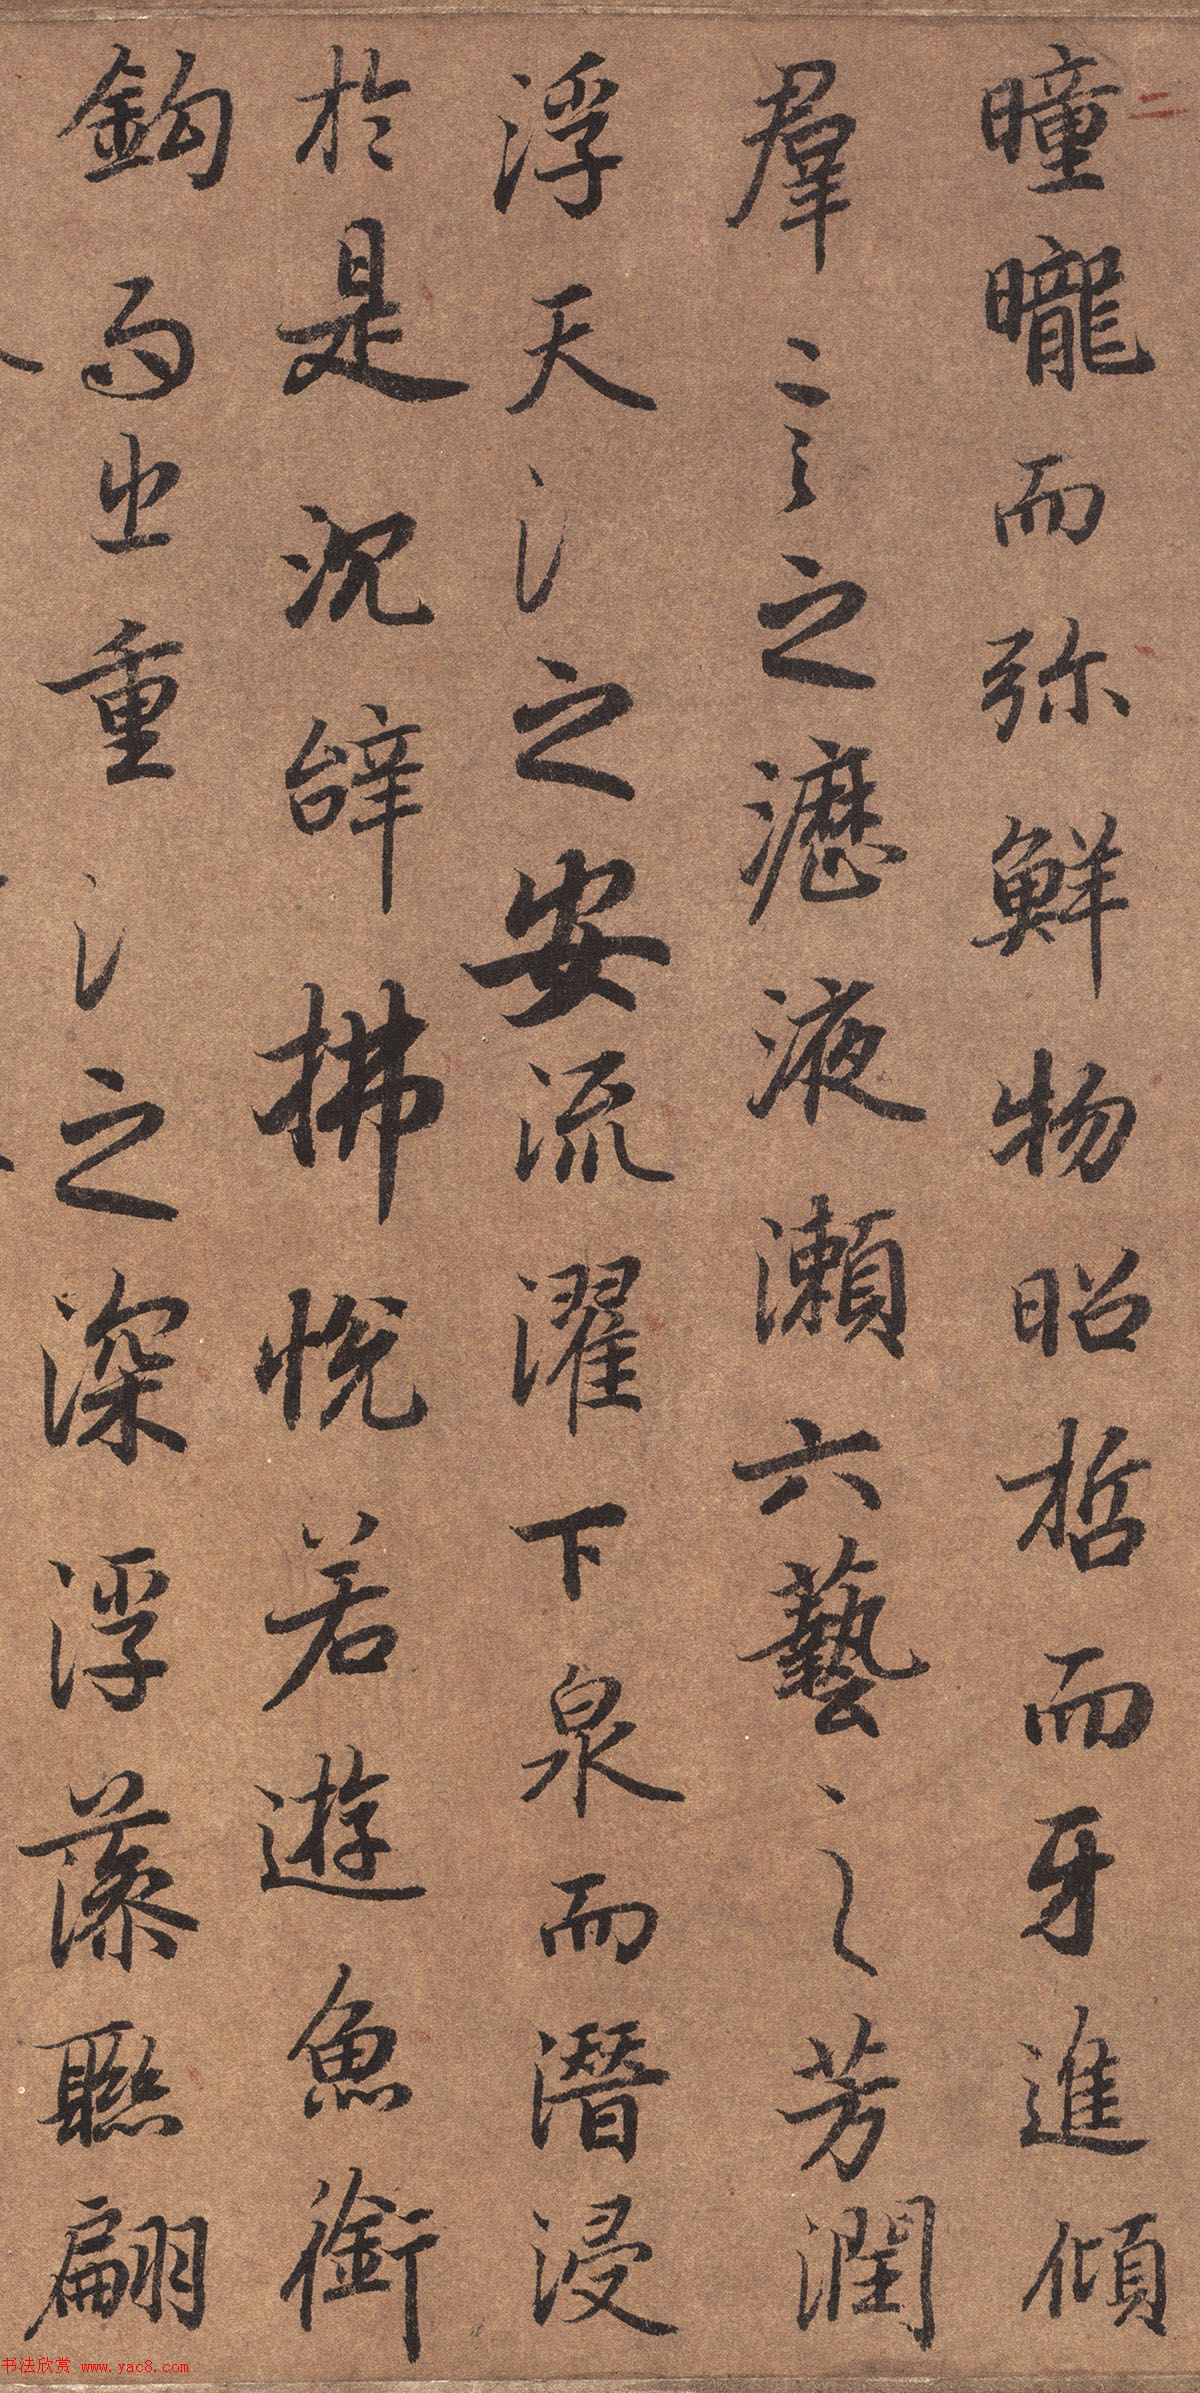 二
曈曨而弥鮮物昭晢而牙進傾
羣言之瀝液瀨六藝之芳潤
浮天氵之安流濯下泉而潛浸
於是沉辝拂悅若遊魚銜
鈎而出重氵之深浮藻聯翩
书法欣赏 www.yac8.com